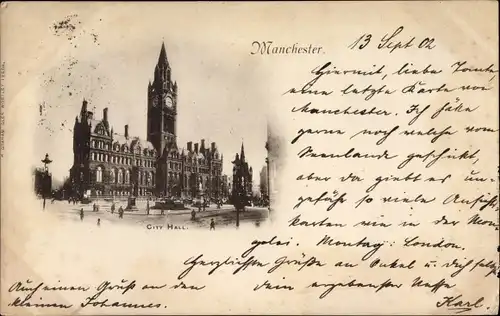 Manchester.
13 Sept 02
Hiermit, liebe Tante
eine letzte Karte von
Manchester. Ich hätte
gerne noch welche vom
Seenlande geschickt,
aber da giebt es un-
gefähr so viele Ansichts-
karten wie in der Mon-
golei. Montag: London.
CITY HALL.
Herzlichste Grüße an Onkel u. dich selbst
dein ergebenster Neffe
Karl.
Auch einen Gruß an den
kleinen Johannes.